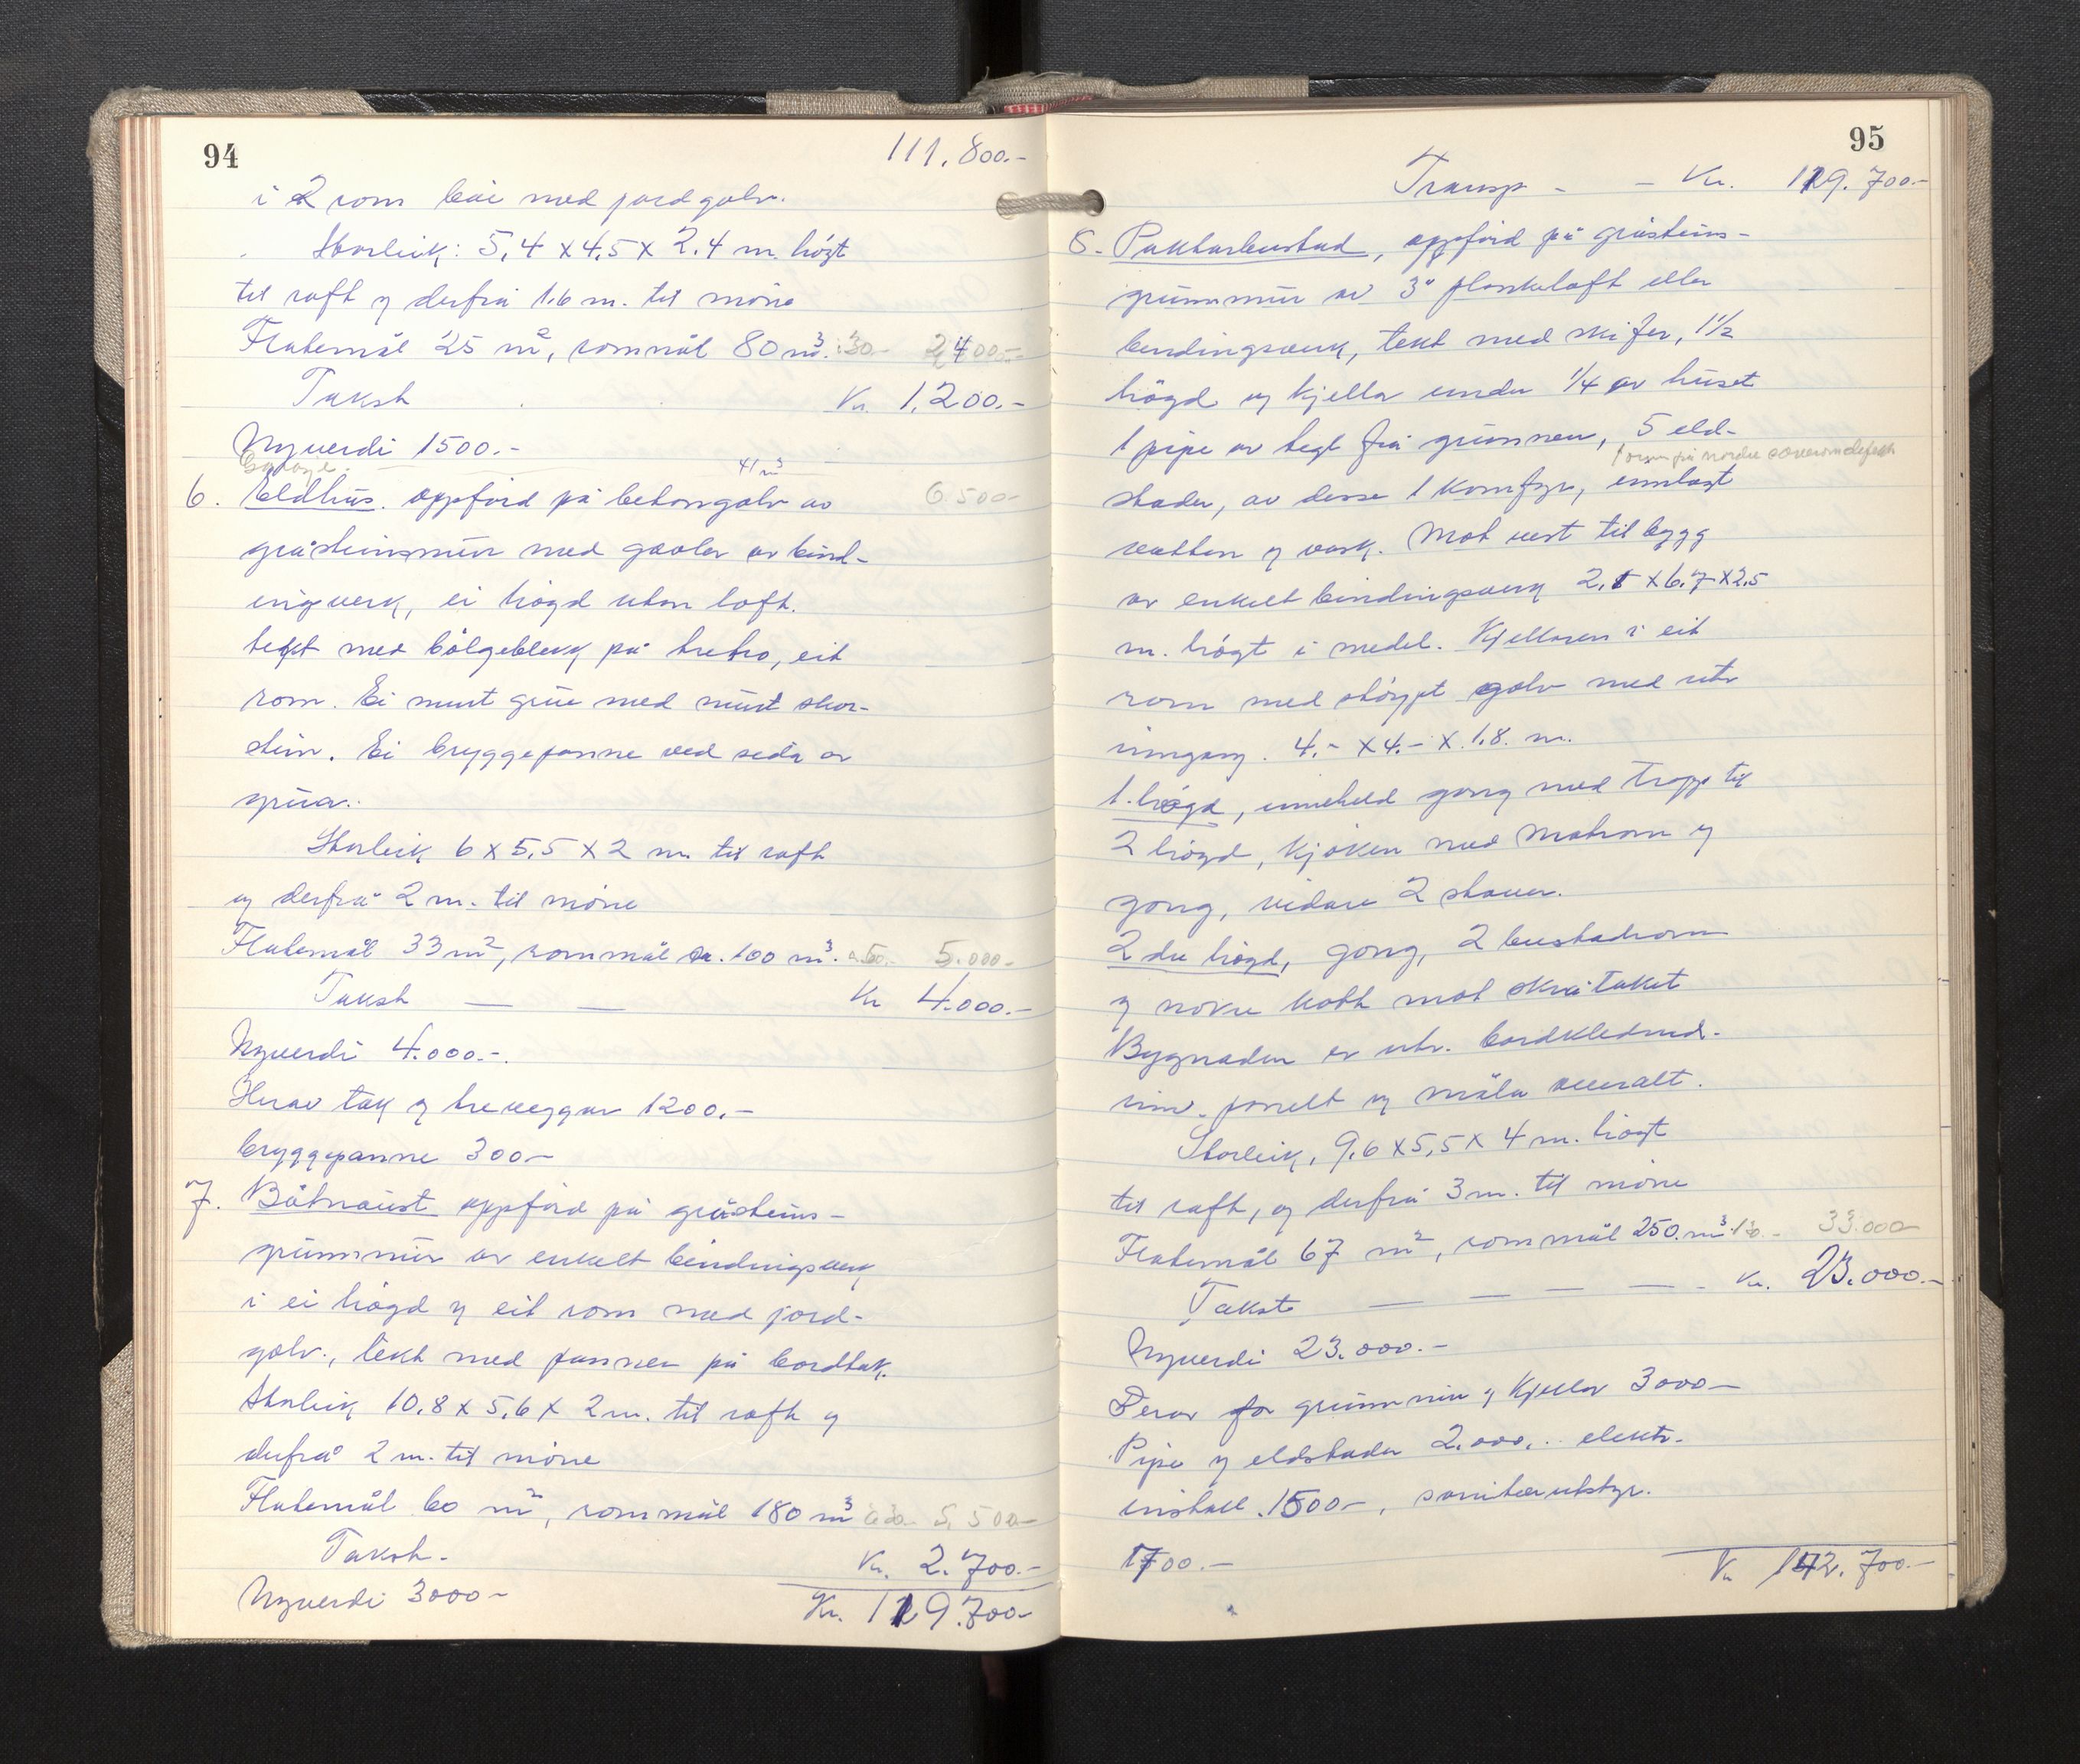 94
111.800.-
i 2 rom bæ med jordgolv.
Storleik: 5,4 x 4,5 x 2,4 m. högt
til raft og derfrå 1,6 m. til möne
Flatemål 25 m², rommål 80 m³. 30.- 2400.-
Takst Kr. 1,200.-
Nyverdi 1500.-
Garage. 41 m³
6. Eldhus. oppförd på betongolv av 6.500-
gråsteinsmur med gavler av bind-
ingverk, ei högd utan loft.
tekt med bölgeblekk på tretro, eit
rom. Ei murt grue med murt skor-
stein. Ei bryggepanne ved sida av
grua.
Storleik 6 x 5,5 x 2 m til raft
og derfrå 2 m. til möne
Flatemål 33 m², rommål ca. 100 m³. a 50.- 5.000-
Takst — — Kr 4.000.-
Nyverdi 4.000.-.
Herav tak og treveggar 1200.-
bryggepanne 300-
7. Båtnaust oppförd på gråsteins-
grunnmur av enkelt bindingsverk
i ei högd og eit rom med jord-
golv., tekt med panner på bordtak.
Storleik 10,8 x 5,6 x 2 m. til raft og
derfrå 2 m. til möne
Flatemål 60 m², rommål 180 m³ a 30- 5.500-
Takst. Kr. 2.700.-
Nyverdi 3000- Kr. 119.700-
95
Transp - - Kr. 119.700.-
8. Paktarbustad, oppförd på gråsteins-
grunnmur av 3" plankeloft eller
bindingsverk, tekt med skifer, 1½
högd og kjellar under ¼ av huset
1 pipe av tegl frå grunnen, 5 eld-
stader, av desse 1 komfyr, innlagt
vatten og vask. Mot vest tilbygg
av enkelt bindingsverk 2,5 x 6,7 x 2,5
m. högt i medel. Kjellaren i eit
rom med stöypt golv med utv
inngang. 4.- x 4.- x 1,8. m.
1. högd, inneheld gong med trapp til
2 högd, kjöken med matrom og
gong, vidare 2 stover.
2 dre högd, gong, 2 bustadrom
og nokre kott mot skråtaket
Bygnaden er utv. bordkledned.
innv. panelt og måla overalt.
Storleik, 9,6 x 5,5 x 4 m. högt
til raft, og derfrå 3 m. til möne
Flatemål 67 m², rommål 250 m³ 33.000-
Takst — — — — Kr. 23.000.-
Nyverdi 23.000.-
Derav for grunnmur og kjellar 3000-
Pipe og eldstader 2.000.- elektr.
install. 1500-, sanitærutstyr.
1700.- Kr 142.700.-